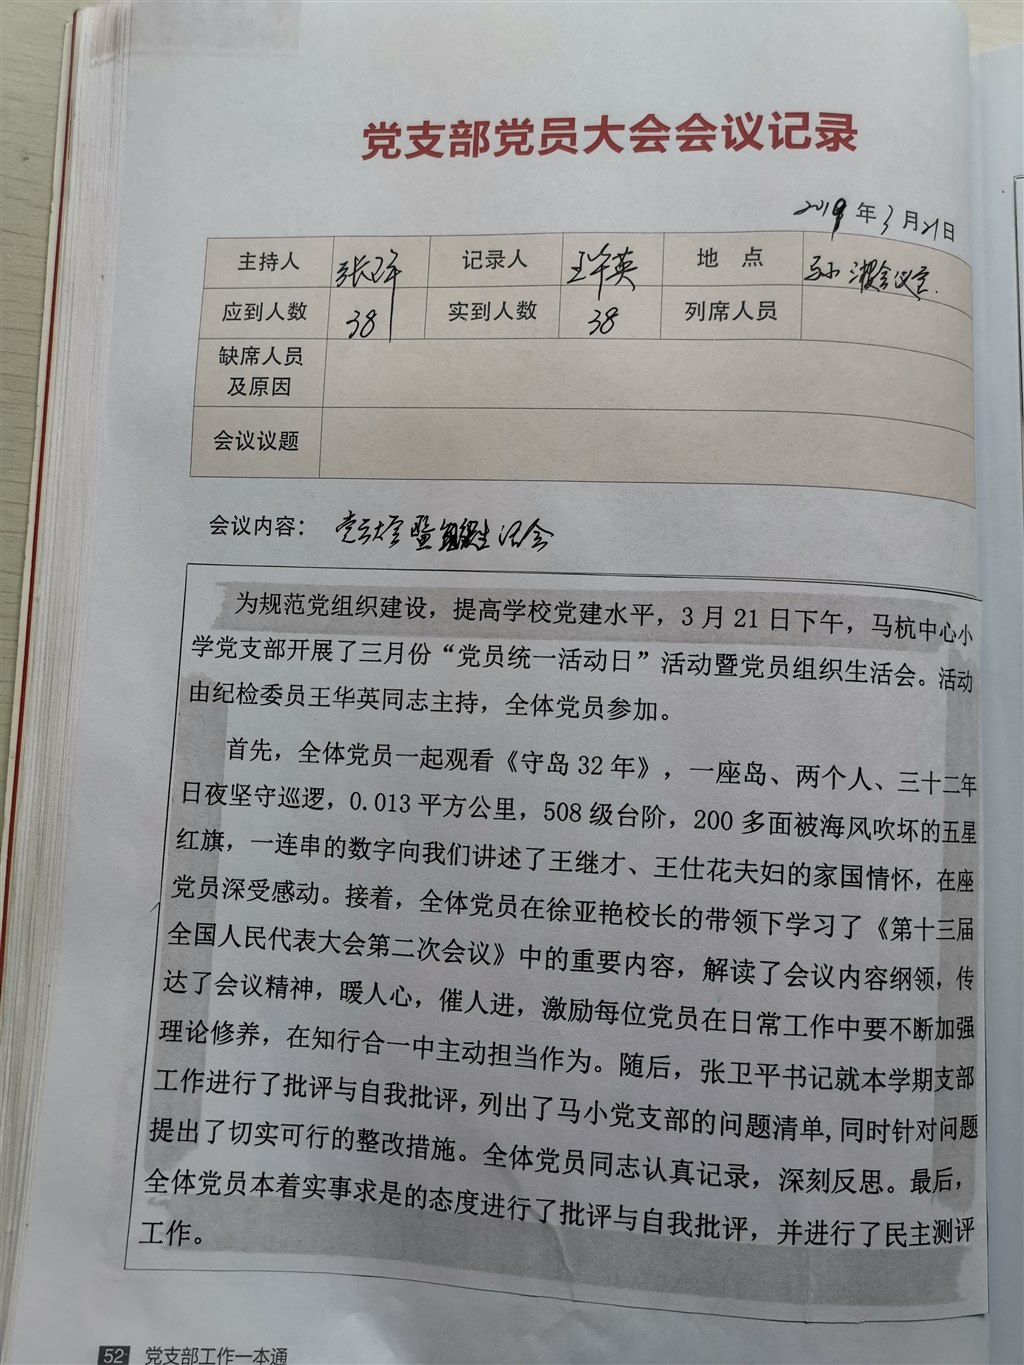 党支部党员大会会议记录
2019年3月21日
主持人 张卫平 记录人 王华英 地点 马小 会议室.
应到人数 38 实到人数 38 列席人员
缺席人员
及原因
会议议题
会议内容： 党员大会暨组织生活会
为规范党组织建设，提高学校党建水平，3月21日下午，马杭中心小
学党支部开展了三月份“党员统一活动日”活动暨党员组织生活会。活动
由纪检委员王华英同志主持，全体党员参加。
首先，全体党员一起观看《守岛32年》，一座岛、两个人、三十二年
日夜坚守巡逻，0.013平方公里，508级台阶，200多面被海风吹坏的五星
红旗，一连串的数字向我们讲述了王继才、王仕花夫妇的家国情怀，在座
党员深受感动。接着，全体党员在徐亚艳校长的带领下学习了《第十三届
全国人民代表大会第二次会议》中的重要内容，解读了会议内容纲领，传
达了会议精神，暖人心，催人进，激励每位党员在日常工作中要不断加强
理论修养，在知行合一中主动担当作为。随后，张卫平书记就本学期支部
工作进行了批评与自我批评，列出了马小党支部的问题清单,同时针对问题
提出了切实可行的整改措施。全体党员同志认真记录，深刻反思。最后，
全体党员本着实事求是的态度进行了批评与自我批评，并进行了民主测评
工作。
52 党支部工作一本通